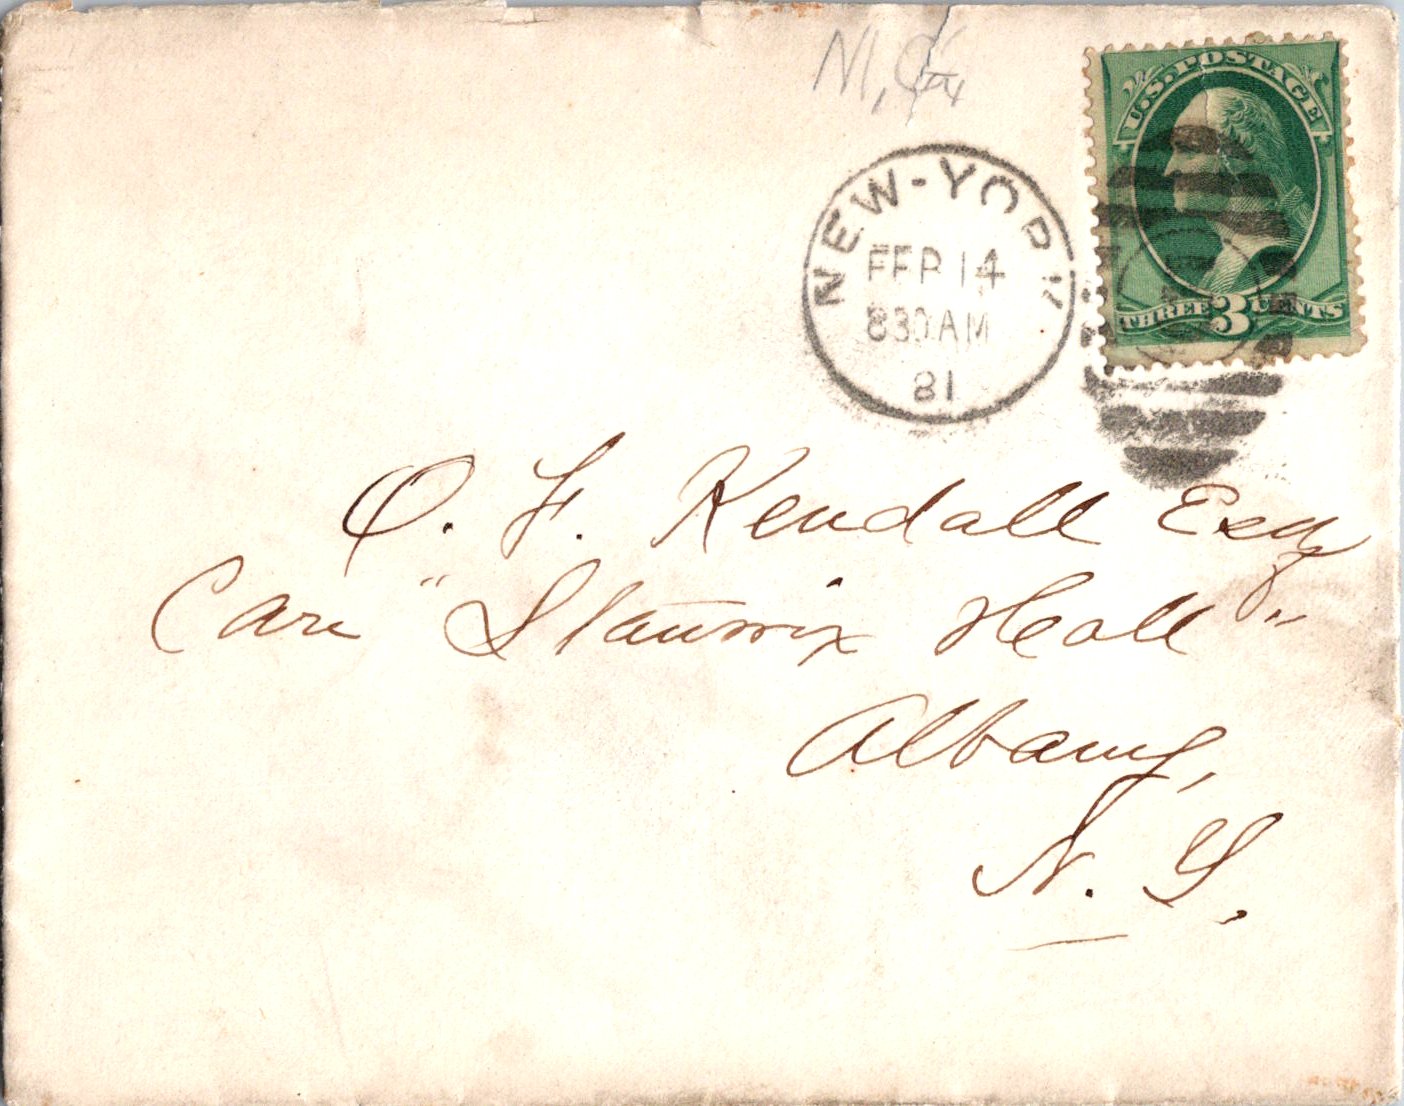 U.S. POSTAGE
THREE 3 CENTS
NEW-YORK
FEB 14
830AM
81
O. F. Kendall Esq
Care "Stanwix Hall"
Albany,
N. Y.